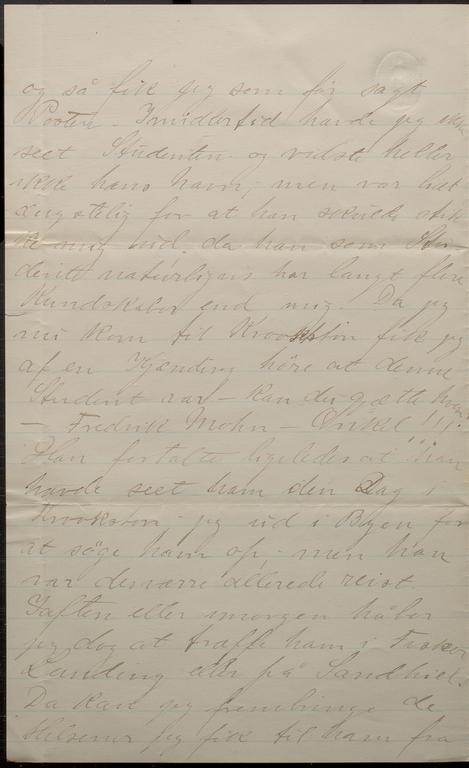 og så fik jeg som før sagt
Posten. Imidlertid havde jeg ikke
seet Studenten og vidste heller
ikke hans Navn; men var lidt
ængstelig for at han skulde stik
ke mig ud, da han som Stu-
dent naturligvis har langt flere
Kundskaber end mig. Da jeg
nu kom til Krookston fik jeg
af en Kjending høre at denne
Student var – kan du gjætte hvem?
– Fredrik Mohn – Onkel !!!
Han fortalte ligeledes at han
havde seet ham den Dag i
Krookston; jeg ud i Byen for
at søge ham op; – men han
var desværre allerede reist.
Iaften eller imorgen håber
jeg dog at træffe ham i Fisher
Landing eller på Sandhill.
Da kan jeg frembringe de
Hilsener jeg fik til ham fra